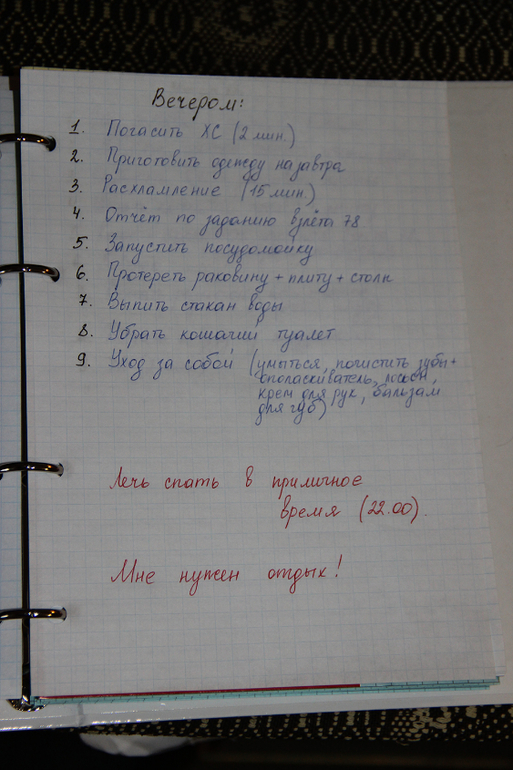 Вечером:
1. Погасить ХС (2 мин.)
2. Приготовить одежду на завтра
3. Расхламление (15 мин.)
4. Отчёт по заданию взлёта 78
5. Запустить посудомойку
6. Протереть раковину + плиту + столик
7. Выпить стакан воды
8. Убрать кошачий туалет
9. Уход за собой (умыться, почистить зубы +
ополаскиватель, лосьон,
крем для рук, бальзам
для губ)
Лечь спать в приличное
время (22.00).
Мне нужен отдых!